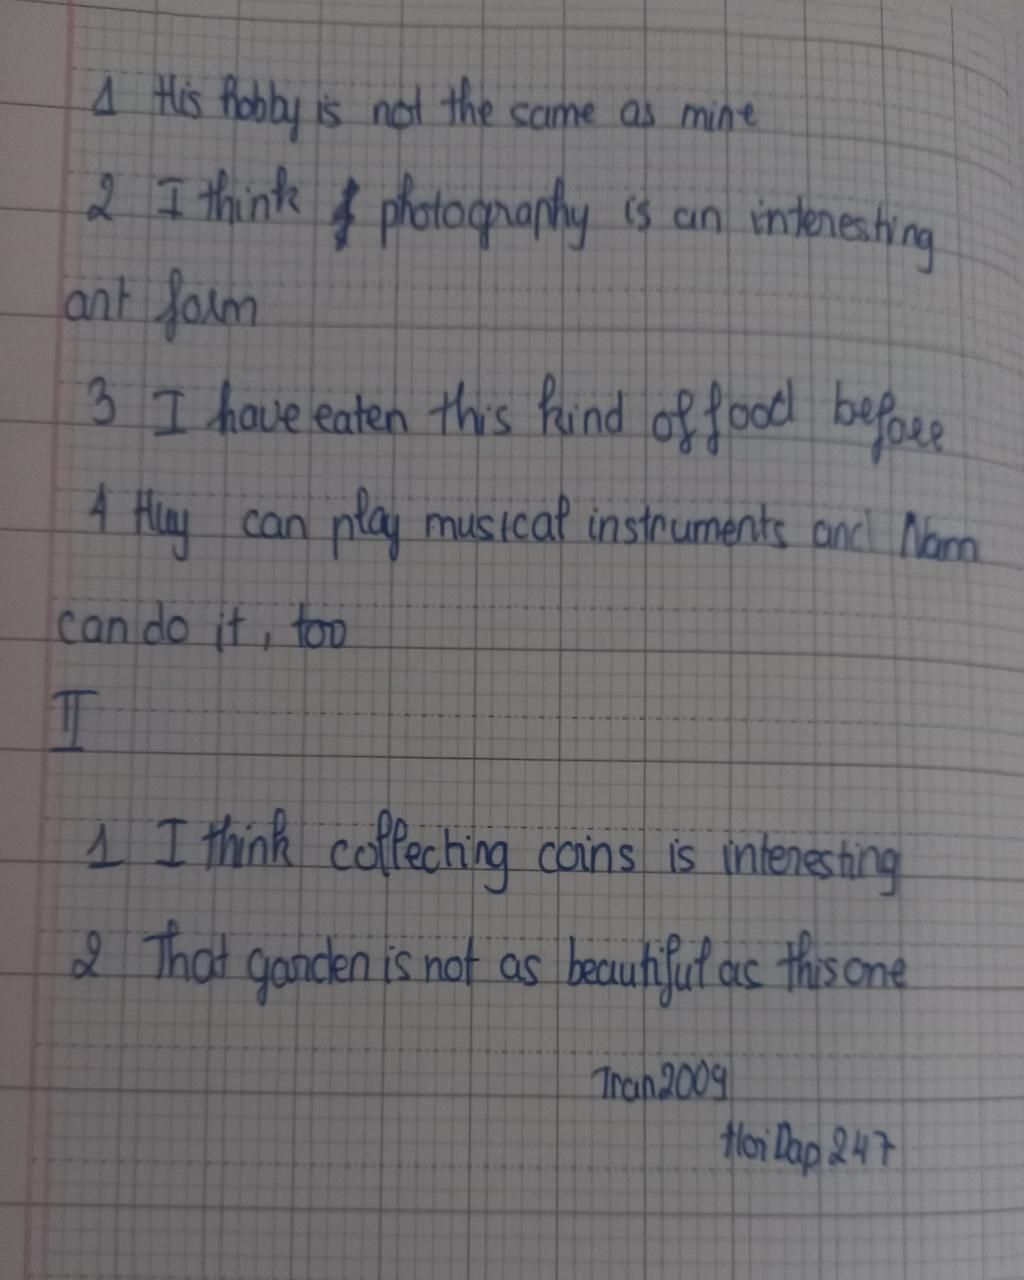 1 His hobby is not the same as mine
2 I think photography is an interesting
art form
3 I have eaten this kind of food before
4 Huy can play musical instruments and Nam
can do it, too
II
1 I think collecting coins is interesting
2 That garden is not as beautiful as this one
Tran2009
HoiDap247